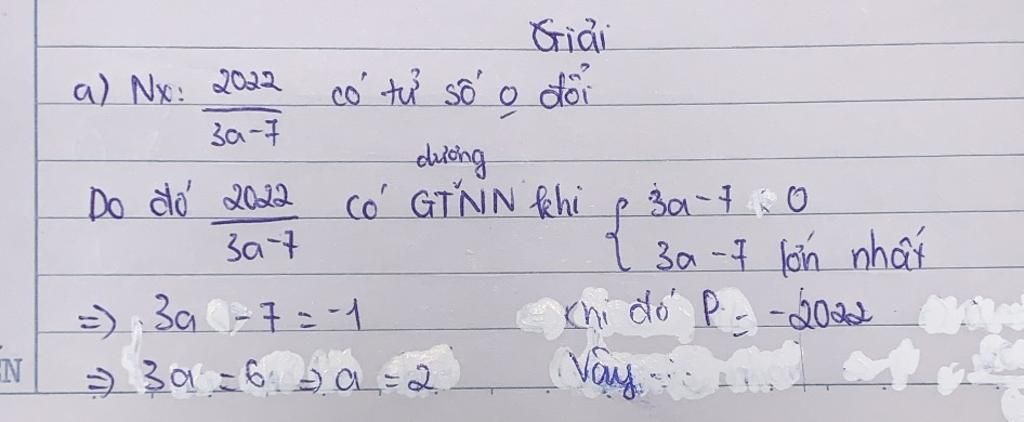 Giải
a) Nx: 2022/3a-7 có tử số o đổi
dương
Do đó 2022/3a-7 có GTNN khi { 3a-7 < 0
3a-7 lớn nhất
=> 3a - 7 = -1 Khi đó P = -2022
=> 3a = 6 => a = 2 Vậy...
N